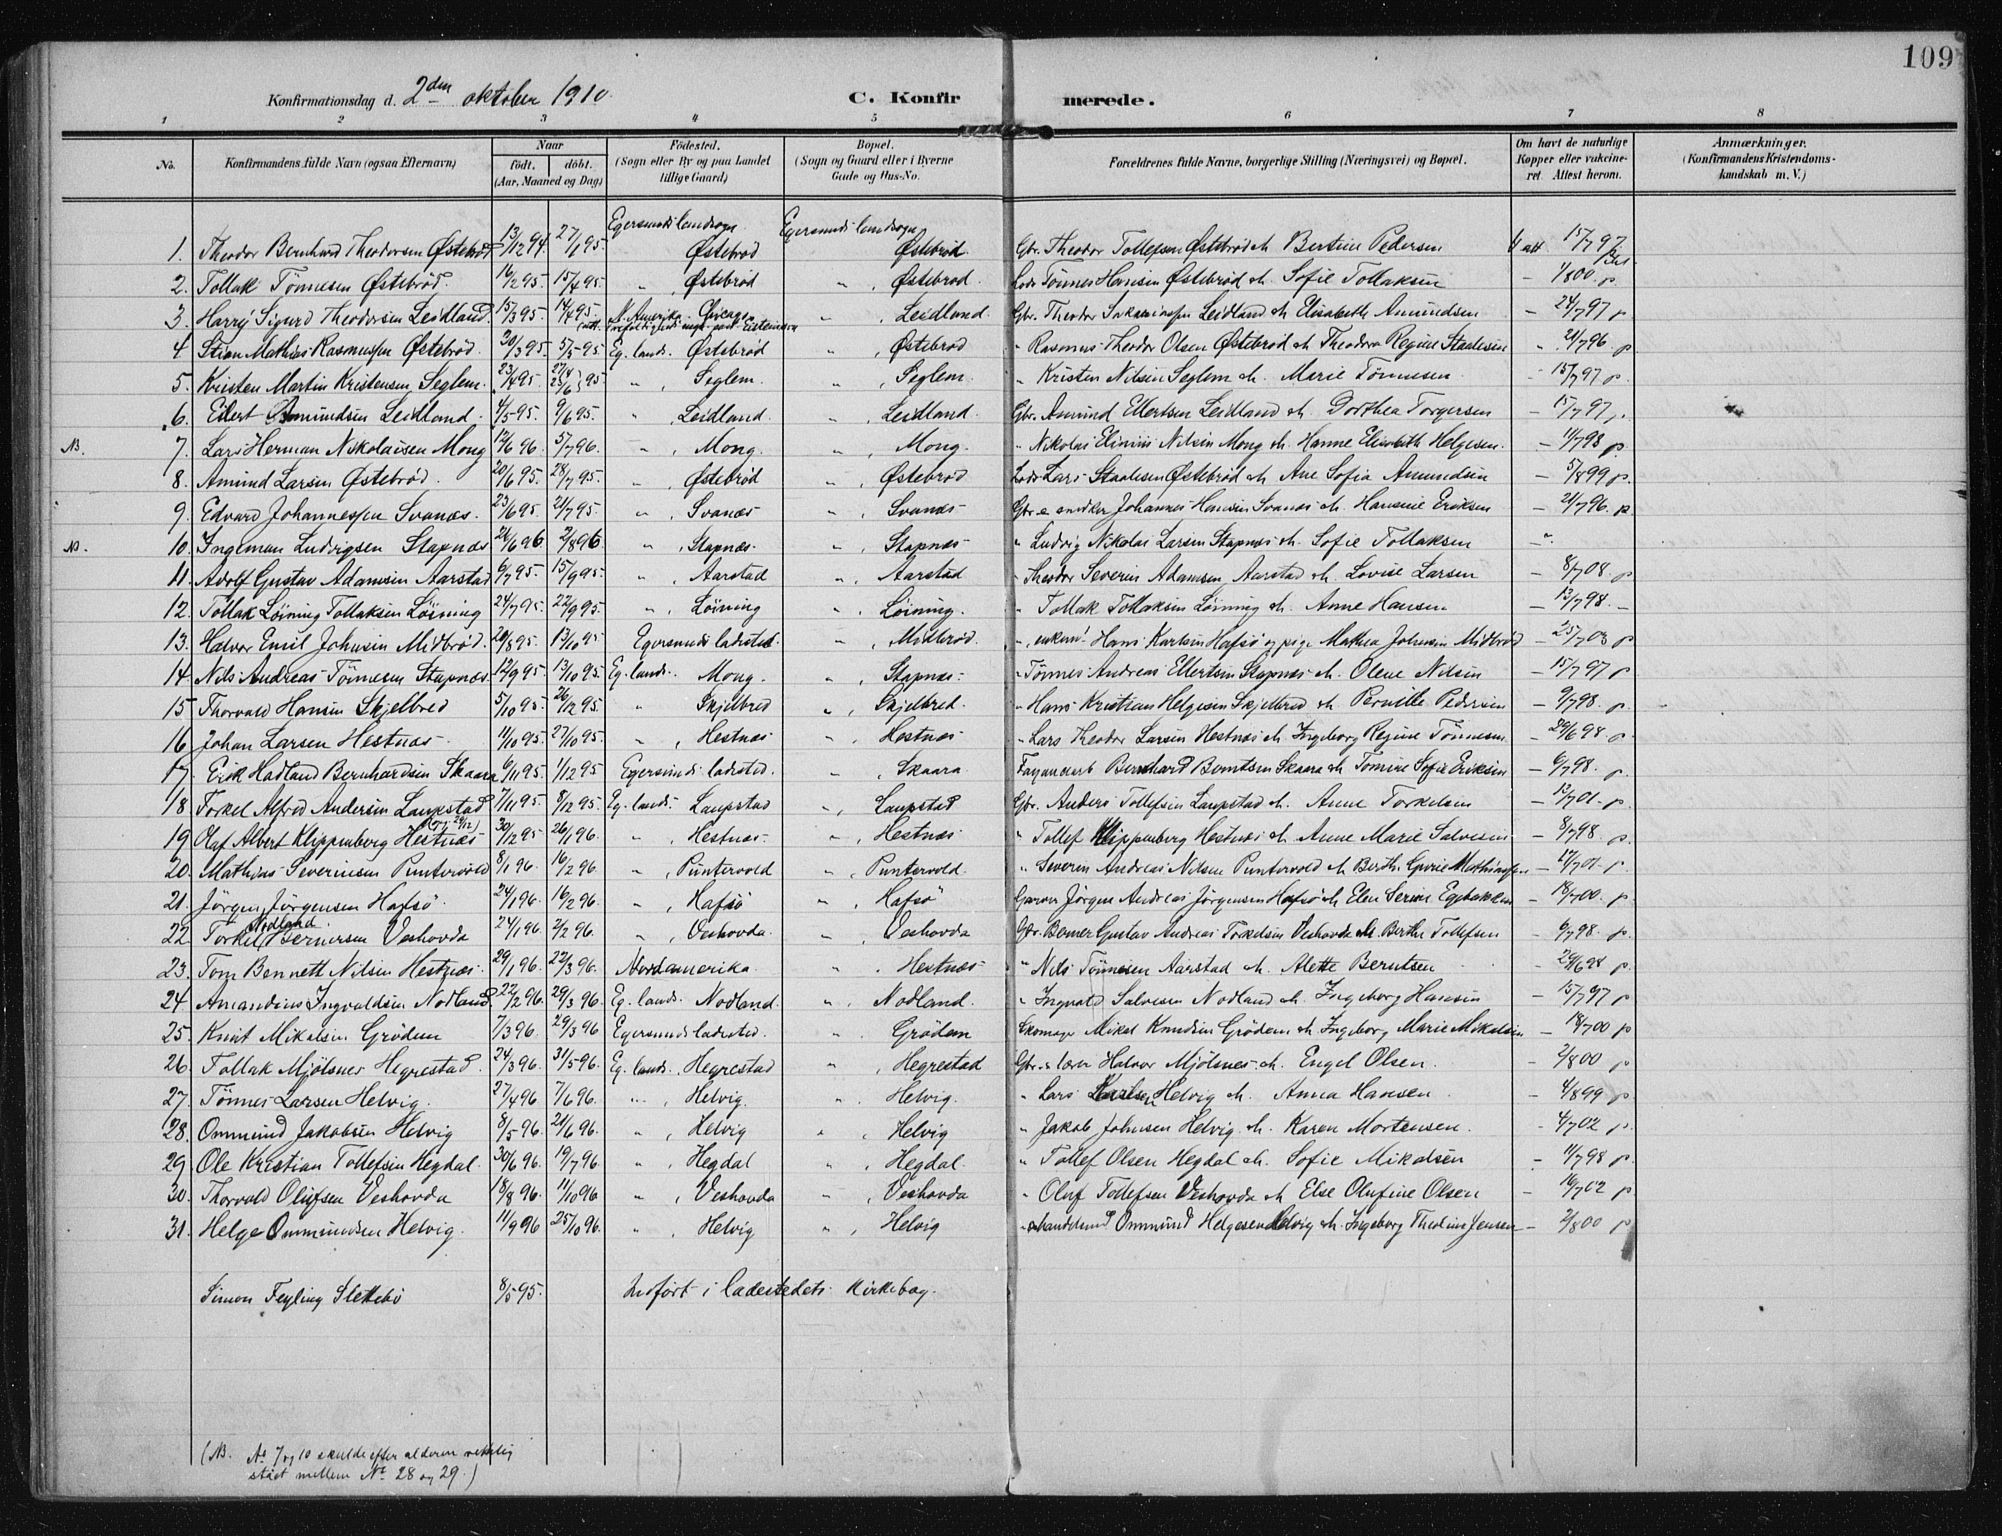 109
Konfirmationsdag d. 2den oktober 1910. C. Konfirmerede.
1 2 3 4 5 6 7 8
No. Konfirmandens fulde Navn (ogsaa Efternavn) Naar födt. döbt. (Aar, Maaned og Dag) Födested. (Sogn eller By og paa Landet tillige Gaard) Bopæl. (Sogn og Gaard eller i Byerne Gade og Hus-No. Forældrenes fulde Navne, borgerlige Stilling (Næringsvei) og Bopæl. Om havt de naturlige Kopper eller vakcineret. Attest herom. Anmærkninger. (Konfirmandens Kristendomskundskab m. V.)
Egersunds landsogn Egersunds landsogn
1. Theodor Bernhard Theodorsen Østebrød 13/12 94. 27/1 95. Østebrød Østebrød Gbr. Theodor Tollefsen Østebrød o h. Bertine Pedersen 15/7 97
2. Tollak Tönnesen Østebrød. 16/2 95. 15/4 95. " , Østebrød " , Østebrød. Tönnes Hansen Østebrød o h. Sofie Tollaksen – 1/8 00. p
3. Harry Sigurd Theodorsen Leidland. 15/3 95. 14/4 95. N. Amerika. Chicago " , Leidland Gbr. Theodor Leidland o h. Elisabeth Amundsen – 24/7 97 p
4. Stian Mathias Rasmussen Østebrød. 30/3 95. 5/5 95. Eg. lands. Østebrød " , Østebrød " Rasmus Theodor Olsen Østebrød o h. Theodora Regine Staalesen " 21/7 96. p
5. Kristen Martin Kristensen Seglem. 23/4 95. 95 " , Seglem. " , Seglem. " Kristen Nilsen Seglem o h. Marie Tönnesen – 15/7 97 p.
6. Eilert Amundsen Leidland. 4/5 95. 9/6 95. " , Leidland. " , Leidland. Gbr. Amund Ellertsen Leidland o h. Dorthea Torgersen – 15/7 97.
NB. 7. Lars Herman Nikolaisen Mong 12/6 96. 5/7 96. " , Mong. " , Mong. " Nikolai Elinius Nilsen Mong o h. Hanne Elisabeth Helgesen. – 11/7 98 p.
8. Amund Larsen Østebrød. 20/6 95. 28/7 95. " , Østebrød " , Østebrød Lars Staalesen Østebrød o h. Ane Sofia Amundsen – 5/8 99 p.
9. Edvard Johannessen Svanæs. 23/6 95. 21/7 95. " , Svanæs " , Svanæs Gbr. o snidker Johannes Hansen Svanæs o h. Hansine Eriksen – 21/7 96. p
NB. 10. Ingeman Ludvigsen Stapnæs 26/6 96 2/8 96. " , Stapnæs. " , Stapnæs " Ludvig Nikolai Larsen Stapnæs o h. Sofie Tollaksen – ".
11. Adolf Gustav Adamsen Aarstad 6/7 95. 15/9 95. " , Aarstad " , Aarstad " Theodor Severin Adamsen Aarstad o h. Lovise Larsen – 8/7 08. p
12. Tollak Löining Tollaksen Löining 24/7 95. 22/9 95. " , Löining " , Löining. " Tollak Tollaksen Löining o h. Anne Hansen – 13/7 98. –
13. Halvor Emil Johnsen Midbrød. 20/8 95. 13/10 95. Egersunds ladested. " , Midbrød ", Hans Karlsen Hafsö og pige Mathea Johnsen Midbrød – 25/7 03 p
14. Nils Andreas Tönnesen Stapnæs. 12/9 95. 13/10 95. Eg. lands. Mong. " , Stapnæs. " Tönnes Andreas Ellertsen Stapnæs o h. Olene Nilsen – 15/7 97 p
15. Thorvald Hansen Skjelbred 5/10 95. 26/12 95. " Skjelbred " , Skjelbred. " Hans Kristian Helgesen Skjelbred o h. Pernille Pedersen – 9/7 98. p.
16. Johan Larsen Hestnæs. 11/10 95. 27/10 95. " , Hestnæs " , Hestnæs " Lars Theodor Larsen Hestnæs o h. Ingeborg Regine Tönnesen – 29/6 98 p
17. Erik Hadland Bernhardsen Skaara 6/11 95. 1/12 95 Egersunds ladested. " , Skaara Fayancearb Bernhard Berntsen Skaara o h. Tomine Sofie Eriksen – 6/7 98. p.
18. Torkel Alfred Andersen Laupstad 7/11 95. 8/12 95. Eg. lands. Laupstad " , Laupstad Gbr. Anders Tollefsen Laupstad o h. Anne Torkelsen – 12/7 01. p
19. Olaf Albert Klippenberg Hestnæs (reg. 29/12) 30/12 95 26/1 96. " , Hestnæs. " , Hestnæs " Tollef Klippenberg Hestnæs o h. Anne Marie Salvesen – 8/7 98. p.
20. Mathias Severinsen Puntervold 8/1 96. 16/2 96. " , Puntervold " , Puntervold. " Severin Andreas Nilsen Puntervold o h. Berthe Gurie Mathiassen – 17/7 01. p
21. Jörgen Jörgensen Hafsö. 24/1 96. 16/2 96. " , Hafsö " , Hafsö Garver Jörgen Andreas Jörgensen Hafsö o h. Elen Serine Egebakken – 18/7 00. p
22. Torkel Nodland Bernersen Veshovda 24/1 96. 2/2 96. " , Veshovda. " , Veshovda Gbr. Berner Gustav Andreas Torkelsen Veshovda o h. Berthe Tollefsen – 6/7 98. p.
23. Tom Bennett Nilsen Hestnæs. 29/1 96. 22/3 96. Nordamerika. " Hestnæs " Nils Tönnesen Aarstad o h. Alette Berntsen – p
24. Amandius Ingvaldsen Nodland 22/2 96. 29/3 96. Eg. lands. Nodland. " , Nodland. " Ingvald Salvesen Nodland o h. Ingeborg Hansen – 15/7 97 p
25. Knut Mikalsen Grödem 7/3 96. 29/3 96 Egersunds ladested. " Grödem Skomager Mikal Knudsen Grödem o h. Ingeborg Marie Mikalsen – 18/7 00 p
26. Tollak Mjölsnes Hegrestad. 24/3 96. 31/5 96. Eg. lands. Hegrestad " , Hegrestad Gbr. o lærer Halvor Mjölsnes o h. Engel Olsen. – 2/8 00 p
27. Tönnes Larsen Helvig. 27/4 96 7/6 96. " , Helvig. " , Helvig. " Lars Helvig o h. Anna Hansen – 4/8 99 p
28. Ommund Jakobsen Helvig 8/5 96. 21/6 96. " , Helvig " , Helvig " Jakob Johnsen Helvig o h. Karen Mortensen. – 4/7 02 p.
29. Ole Kristian Tollefsen Hegdal. 30/6 96. 19/7 96. " , Hegdal " , Hegdal. " Tollef Olsen Hegdal o h. Sofie Mikalsen – 11/7 98 p.
30. Thorvald Olufsen Veshovda 18/8 96. 11/10 96 " , Veshovda " , Veshovda " Oluf Tollefsen Veshovda o h. Else Olufine Olsen – 16/7 02 p
31. Helge Ommundsen Helvig. 11/9 96 25/10 96. " , Helvig " , Helvig " o handelsmd Ommund Helgesen Helvig o h. Ingeborg Theoline Jensen – 2/8 00 p
Simon Feyling Slettebö 8/5 95. Indfört i ladestedets kirkebog.
(NB. No 7 og 10 skulde efter alderen rettelig
staaet mellem No 28 og 29.)